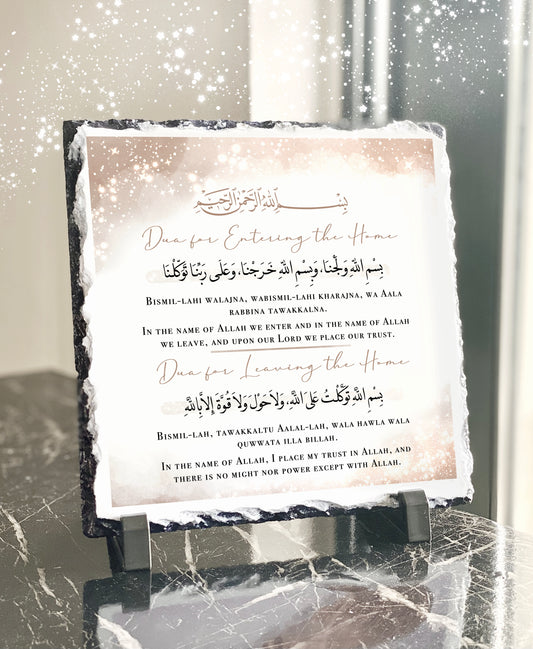 بِسْمِ اللهِ الرَّحْمٰنِ الرَّحِيْمِ
Dua for Entering the Home
بِسْمِ اللَّهِ وَلَجْنَا، وَبِسْمِ اللَّهِ خَرَجْنَا، وَعَلَى رَبِّنَا تَوَكَّلْنَا
Bismil-lahi walajna, wabismil-lahi kharajna, wa Aala
rabbina tawakkalna.
In the name of Allah we enter and in the name of Allah
we leave, and upon our Lord we place our trust.
Dua for Leaving the Home
بِسْمِ اللَّهِ تَوَكَّلْتُ عَلَى اللَّهِ، وَلاَ حَوْلَ وَلاَ قُوَّةَ إِلاَّ بِاللَّهِ
Bismil-lah, tawakkaltu Aalal-lah, wala hawla wala
quwwata illa billah.
In the name of Allah, I place my trust in Allah, and
there is no might nor power except with Allah.